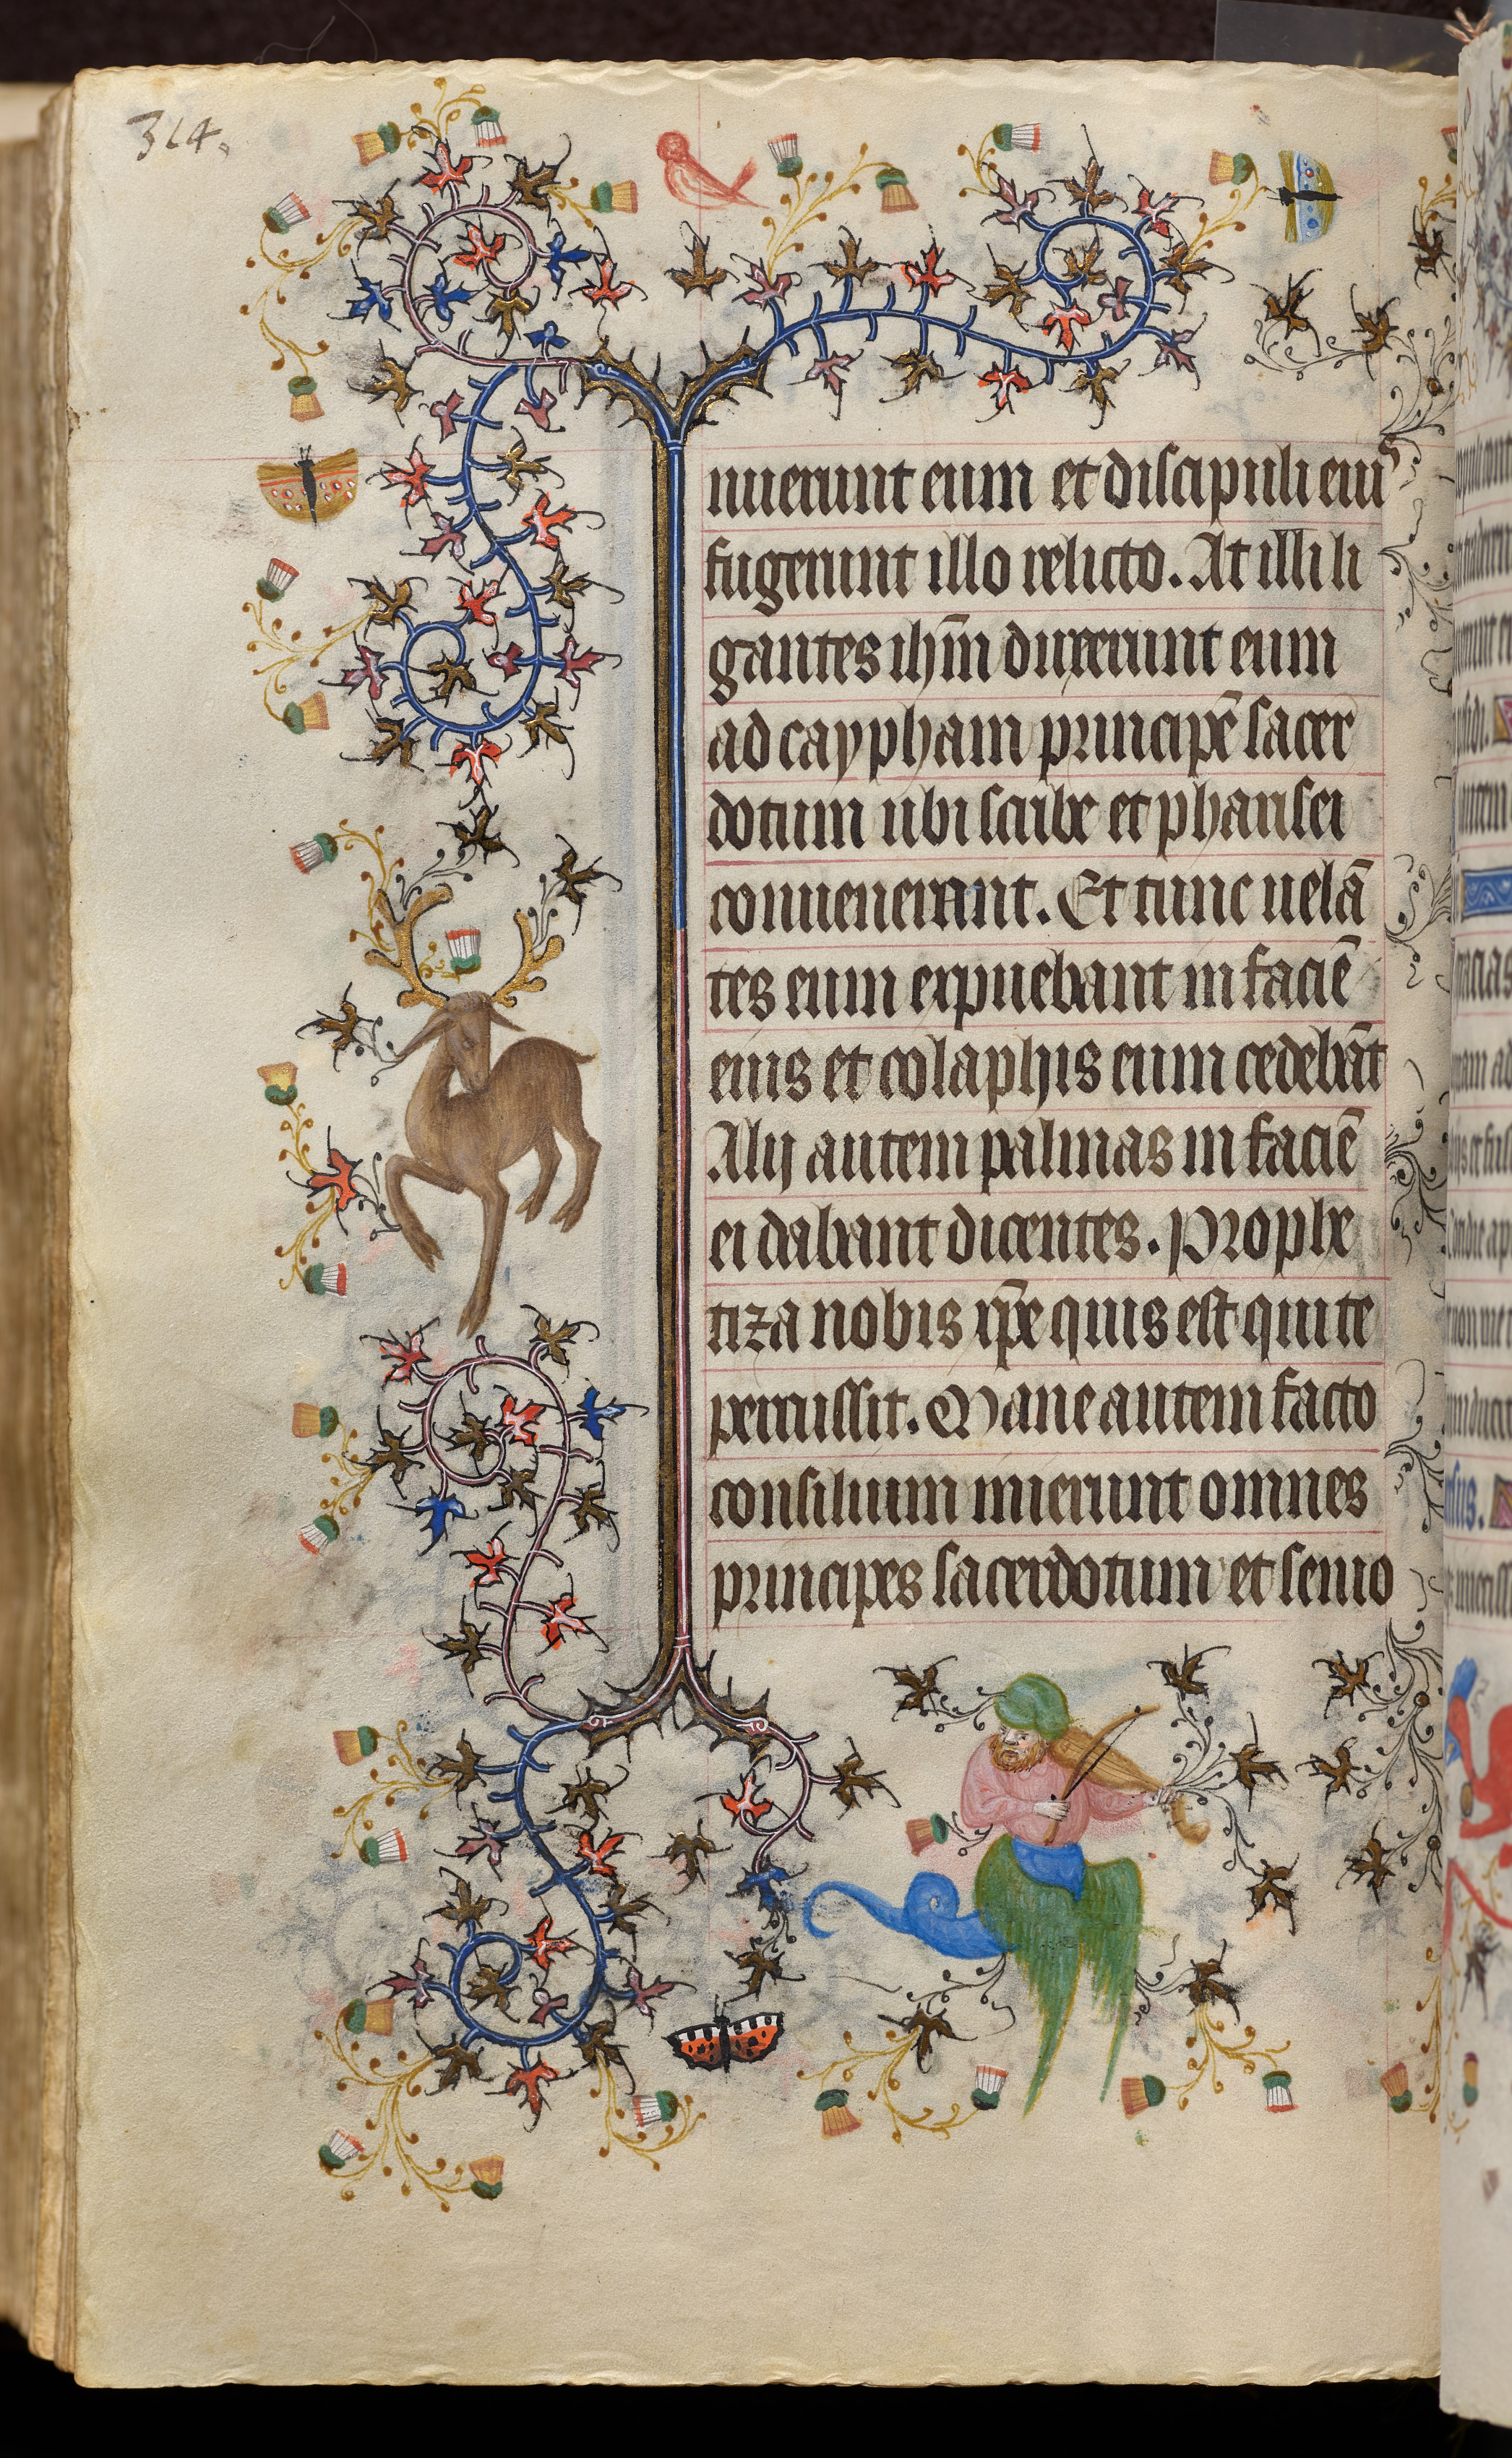 314.
nuerunt eum et discipuli eiꝰ
fugerunt illo relicto. At illi li
gantes ihm̄ duxerunt eum
ad caypham principē sacer
dotum ubi scribe et pharisei
conuenerant. Et tunc uelā
tes eum expuebant in faciē
eius et colaphis eum cedebāt
Alij autem palmas in faciē
ei dabant dicentes. Prophe
tiza nobis xp̄e quis est qui te
percussit. Mane autem facto
consilium inierunt omnes
principes sacerdotum et senio